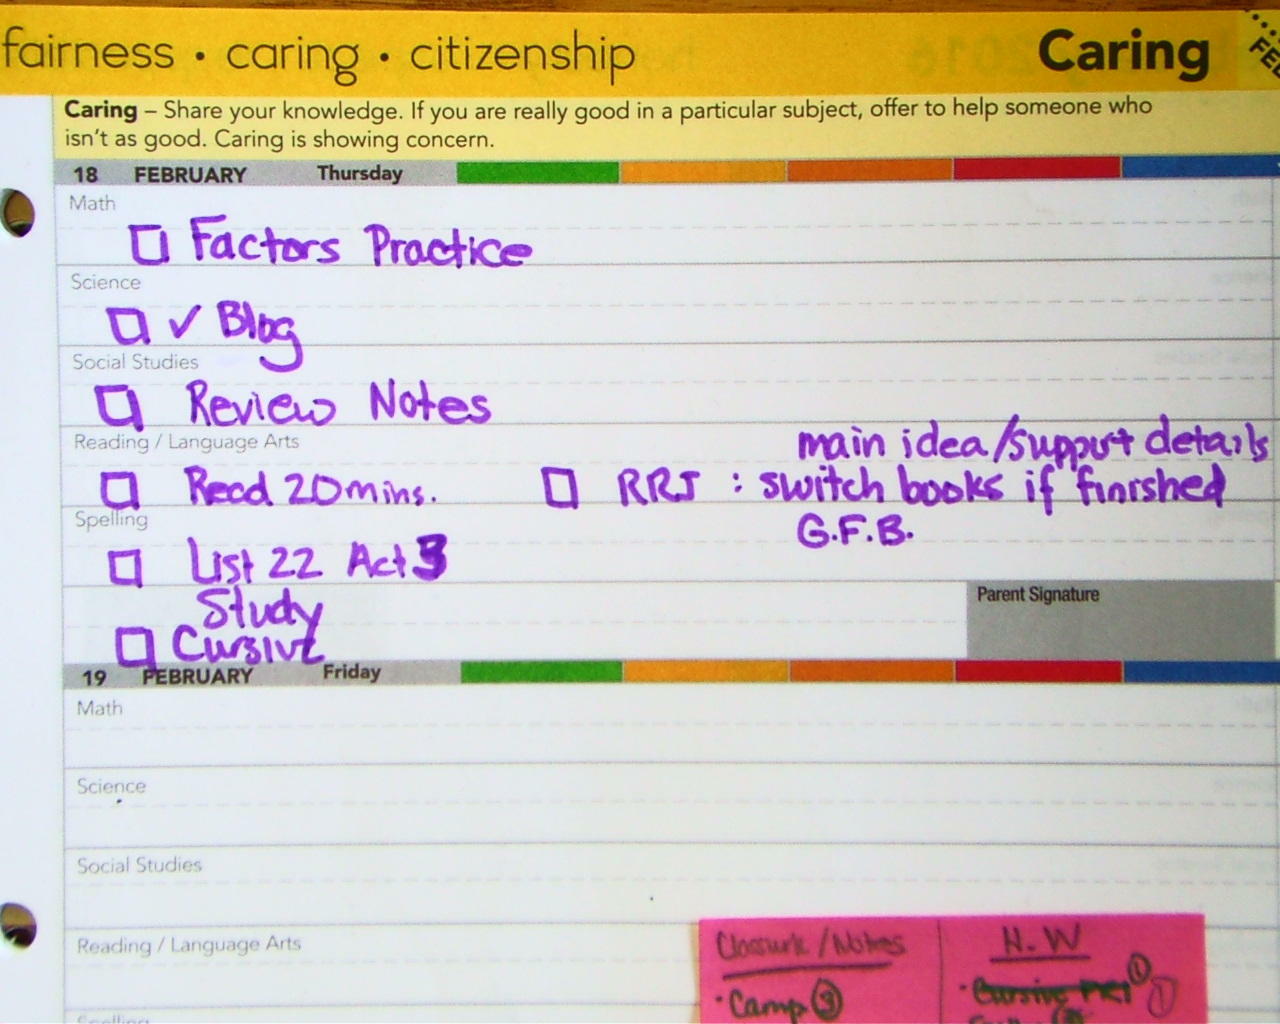 fairness • caring • citizenship Caring
Caring – Share your knowledge. If you are really good in a particular subject, offer to help someone who
isn't as good. Caring is showing concern.
18 FEBRUARY Thursday
Math
Factors Practice
Science
✓ Blog
Social Studies
Review Notes
Reading / Language Arts
main idea/support details
Read 20mins. RRJ : switch books if finished
G.F.B.
Spelling
List 22 Act 3
Study
Cursive
Parent Signature
19 FEBRUARY Friday
Math
Science
Social Studies
Reading / Language Arts
Classwk / Notes H.W
• Camp ③ • Cursive ①
Spelling